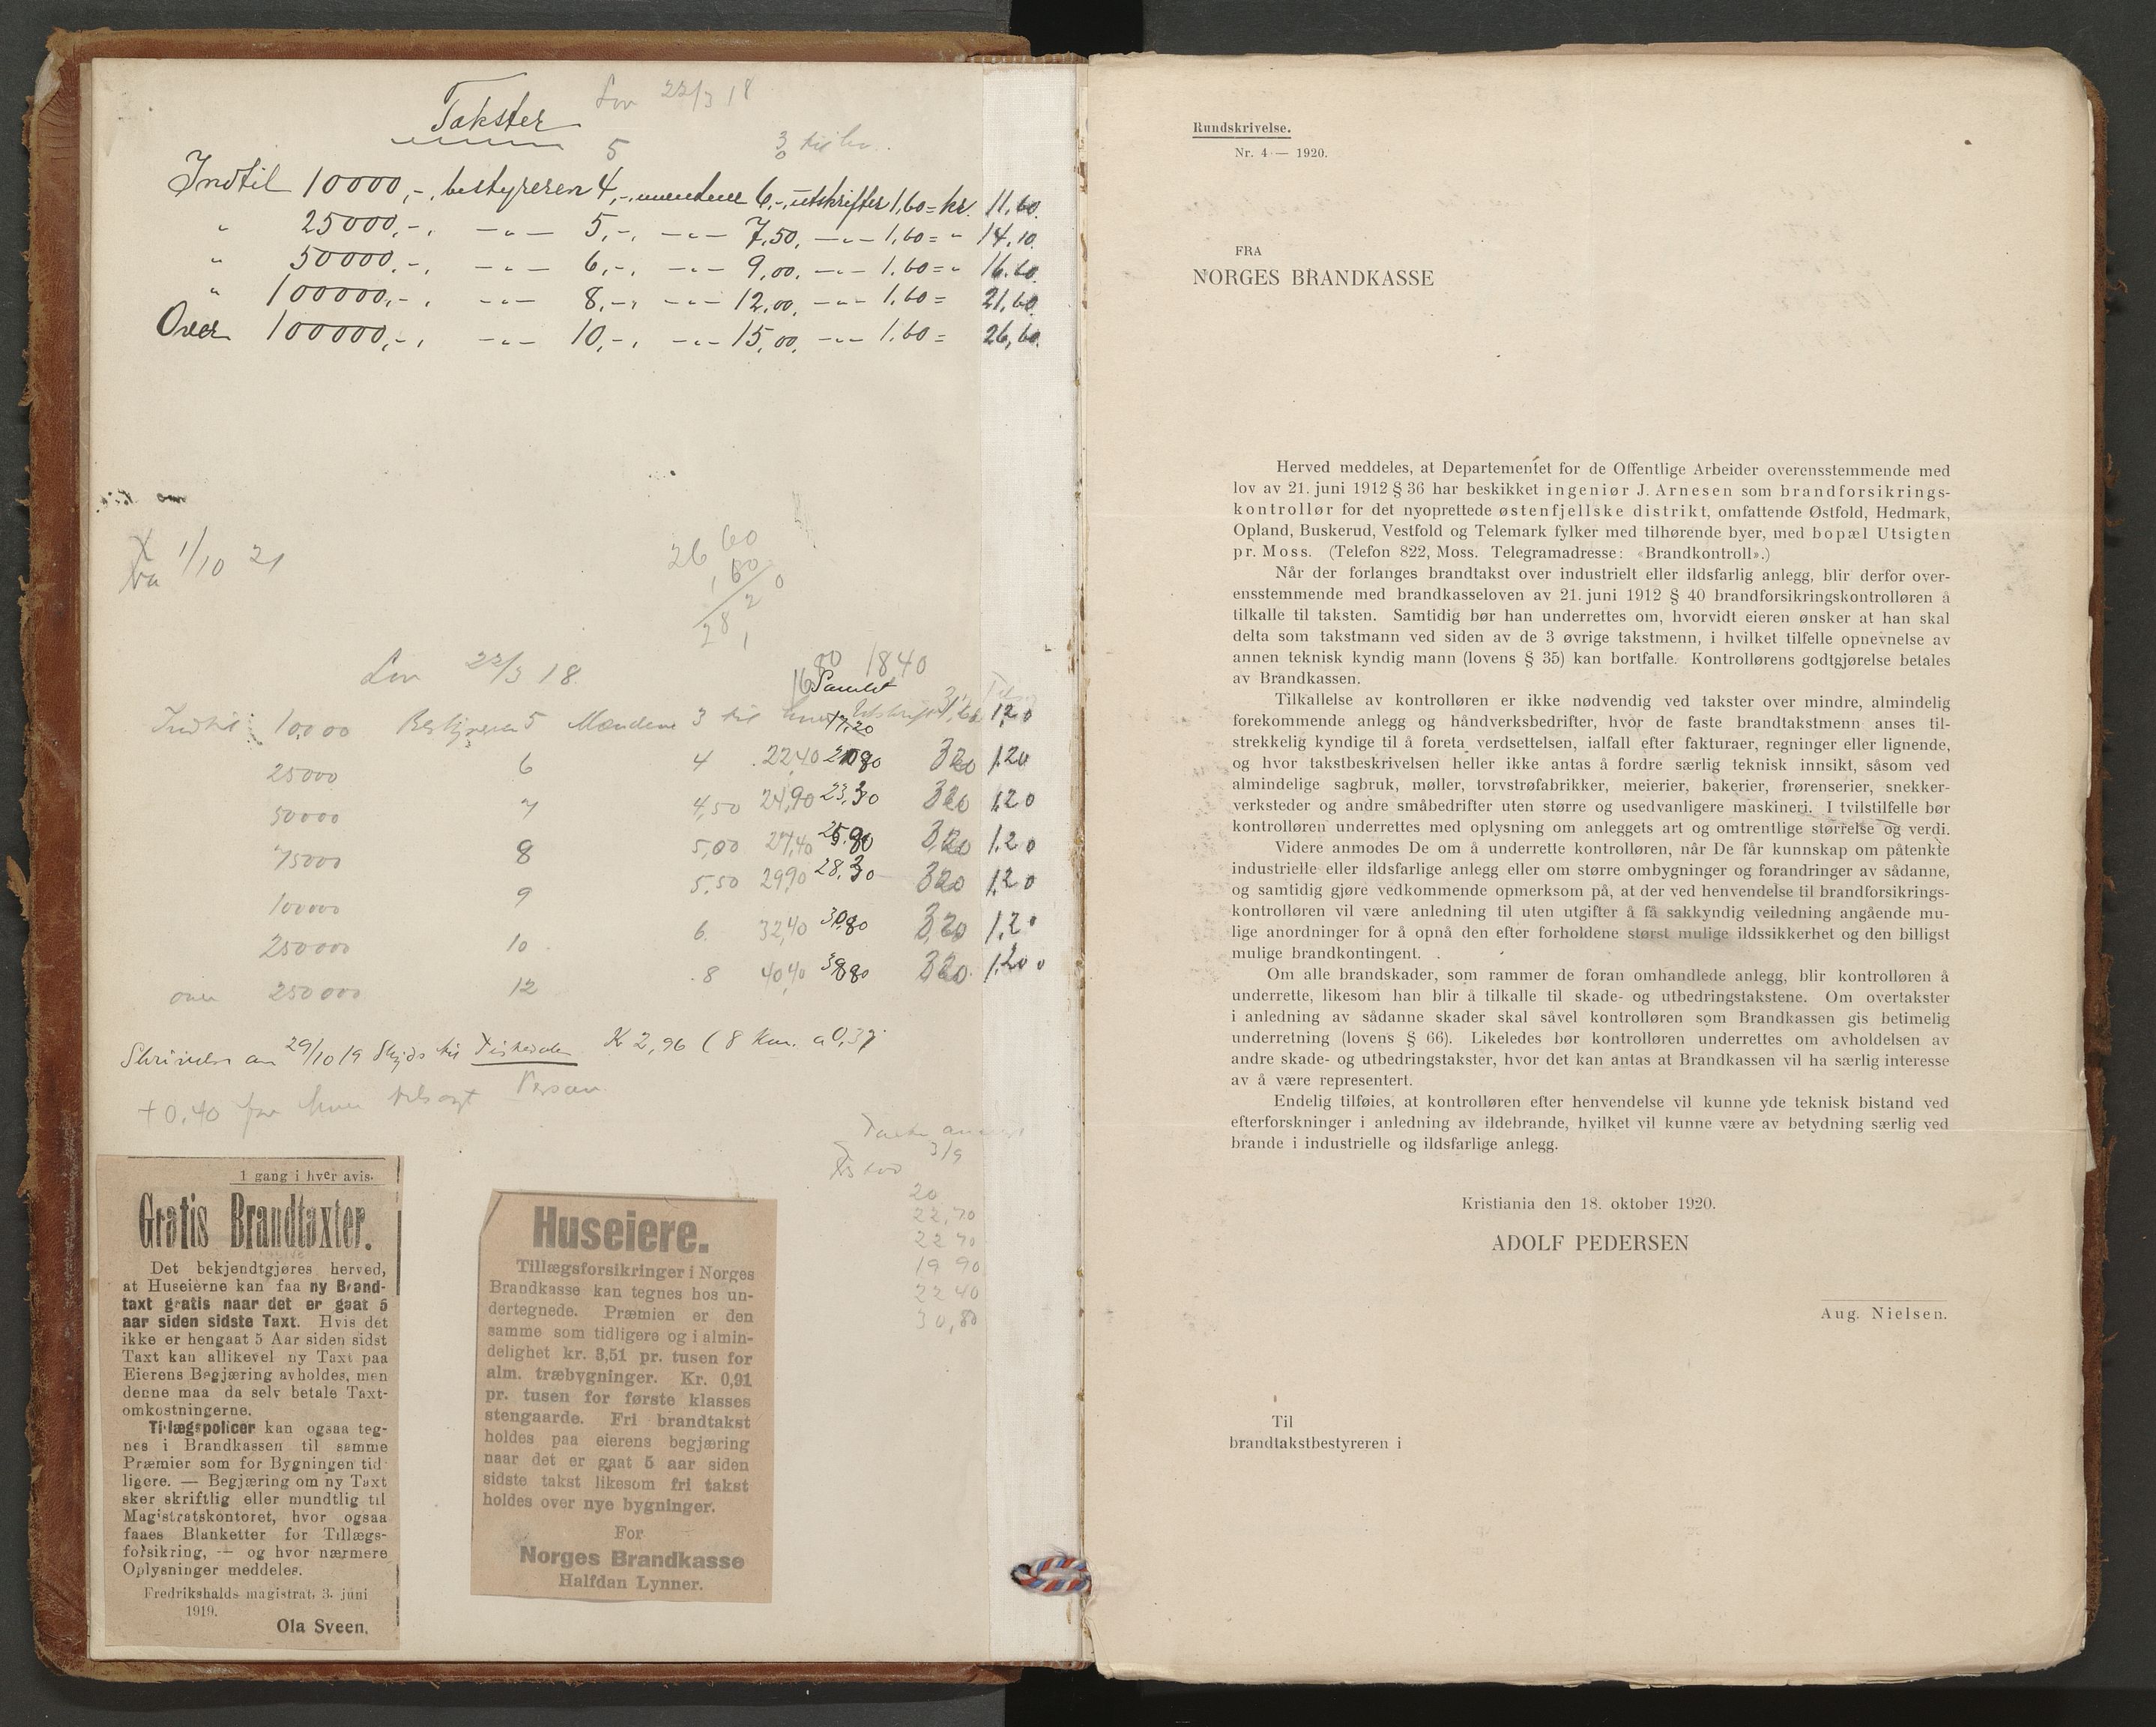 Takster
Lov 22/3 18
5
3 til hv.
Indtil 10000,-, bestyreren 4,-, mændene 6,-, utskrifter 1,60 = kr. 11,60.
" 25000,-, -"- 5,-, -"- 7,50, -"- 1,60 = " 14,10.
" 50000,-, -"- 6,-, -"- 9,00, -"- 1,60 = " 16,60.
" 100000,-, -"- 8,-, -"- 12,00, -"- 1,60 = 21,60.
Over 100000,-, -"- 10,-, -"- 15,00, -"- 1,60 = 26,60.
1/10 21
26 60
1,60
28,20
Lov 22/3 18.
16 80 1840
Samlet
Indtil 10000 Bestyreren 5 Mændene 3 til hver Utskrift 1,20
17,20
25000 6 4 22,40 20,80 3,20 1,20
50000 7 4,50 24,90 23,30 3,20 1,20
75000 8 5,00 27,40 25,80 3,20 1,20
100000 9 5,50 29,90 28,30 3,20 1,20
250000 10 6. 32,40 30,80 3,20 1,20
over 250000 12 8 40,40 38,80 3,20 1,20
Skrivelse av 29/10 19 Skyds til Tistedalen Kr 2,96 (8 Km. a 0,37
+ 0,40 for hver tilsagt Person
3/9
20
22,70
22 70
19 90
22 40
30,80
1 gang i hver avis.
Gratis Brandtaxter.
Det bekjendtgjøres herved,
at Huseierne kan faa ny Brand-
taxt gratis naar det er gaat 5
aar siden sidste Taxt. Hvis det
ikke er hengaat 5 Aar siden sidst
Taxt kan allikevel ny Taxt paa
Eierens Begjæring avholdes, men
denne maa da selv betale Taxt-
omkostningerne.
Tillægspolicer kan ogsaa teg-
nes i Brandkassen til samme
Præmier som for Bygningen tid
ligere. — Begjæring om ny Taxt
sker skriftlig eller mundtlig til
Magistratskontoret, hvor ogsaa
faaes Blanketter for Tillægs-
forsikring, — og hvor nærmere
Oplysninger meddeles.
Fredrikshalds magistrat, 3. juni
1919.
Ola Sveen.
Huseiere.
Tillægsforsikringer i Norges
Brandkasse kan tegnes hos un-
dertegnede. Præmien er den
samme som tidligere og i almin-
delighet kr. 3,51 pr. tusen for
alm. træbygninger. Kr. 0,91
pr. tusen for første klasses
stengaarde. Fri brandtakst
holdes paa eierens begjæring
naar det er gaat 5 aar siden
sidste takst likesom fri takst
holdes over nye bygninger.
For
Norges Brandkasse
Halfdan Lynner.
Rundskrivelse.
Nr. 4 — 1920.
FRA
NORGES BRANDKASSE
Herved meddeles, at Departementet for de Offentlige Arbeider overensstemmende med
lov av 21. juni 1912 § 36 har beskikket ingeniør J. Arnesen som brandforsikrings-
kontrollør for det nyoprettede østenfjellske distrikt, omfattende Østfold, Hedmark,
Opland, Buskerud, Vestfold og Telemark fylker med tilhørende byer, med bopæl Utsigten
pr. Moss. (Telefon 822, Moss. Telegramadresse: «Brandkontroll».)
Når der forlanges brandtakst over industrielt eller ildsfarlig anlegg, blir derfor over-
ensstemmende med brandkasseloven av 21. juni 1912 § 40 brandforsikringskontrolløren å
tilkalle til taksten. Samtidig bør han underrettes om, hvorvidt eieren ønsker at han skal
delta som takstmann ved siden av de 3 øvrige takstmenn, i hvilket tilfelle opnevnelse av
annen teknisk kyndig mann (lovens § 35) kan bortfalle. Kontrollørens godtgjørelse betales
av Brandkassen.
Tilkallelse av kontrolløren er ikke nødvendig ved takster over mindre, almindelig
forekommende anlegg og håndverksbedrifter, hvor de faste brandtakstmenn anses til-
strekkelig kyndige til å foreta verdsettelsen, ialfall efter fakturaer, regninger eller lignende,
og hvor takstbeskrivelsen heller ikke antas å fordre særlig teknisk innsikt, såsom ved
almindelige sagbruk, møller, torvstrøfabrikker, meierier, bakerier, frørenserier, snekker-
verksteder og andre småbedrifter uten større og usedvanligere maskineri. I tvilstilfelle bør
kontrolløren underrettes med oplysning om anleggets art og omtrentlige størrelse og verdi.
Videre anmodes De om å underrette kontrolløren, når De får kunnskap om påtenkte
industrielle eller ildsfarlige anlegg eller om større ombygninger og forandringer av sådanne,
og samtidig gjøre vedkommende opmerksom på, at der ved henvendelse til brandforsikrings-
kontrolløren vil være anledning til uten utgifter å få sakkyndig veiledning angående mu-
lige anordninger for å opnå den efter forholdene størst mulige ildssikkerhet og den billigst
mulige brandkontingent.
Om alle brandskader, som rammer de foran omhandlede anlegg, blir kontrolløren å
underrette, likesom han blir å tilkalle til skade- og utbedringstakstene. Om overtakster
i anledning av sådanne skader skal såvel kontrolløren som Brandkassen gis betimelig
underretning (lovens § 66). Likeledes bør kontrolløren underrettes om avholdelsen av
andre skade- og utbedringstakster, hvor det kan antas at Brandkassen vil ha særlig interesse
av å være representert.
Endelig tilføies, at kontrolløren efter henvendelse vil kunne yde teknisk bistand ved
efterforskninger i anledning av ildebrande, hvilket vil kunne være av betydning særlig ved
brande i industrielle og ildsfarlige anlegg.
Kristiania den 18. oktober 1920.
ADOLF PEDERSEN
Aug. Nielsen.
Til
brandtakstbestyreren i